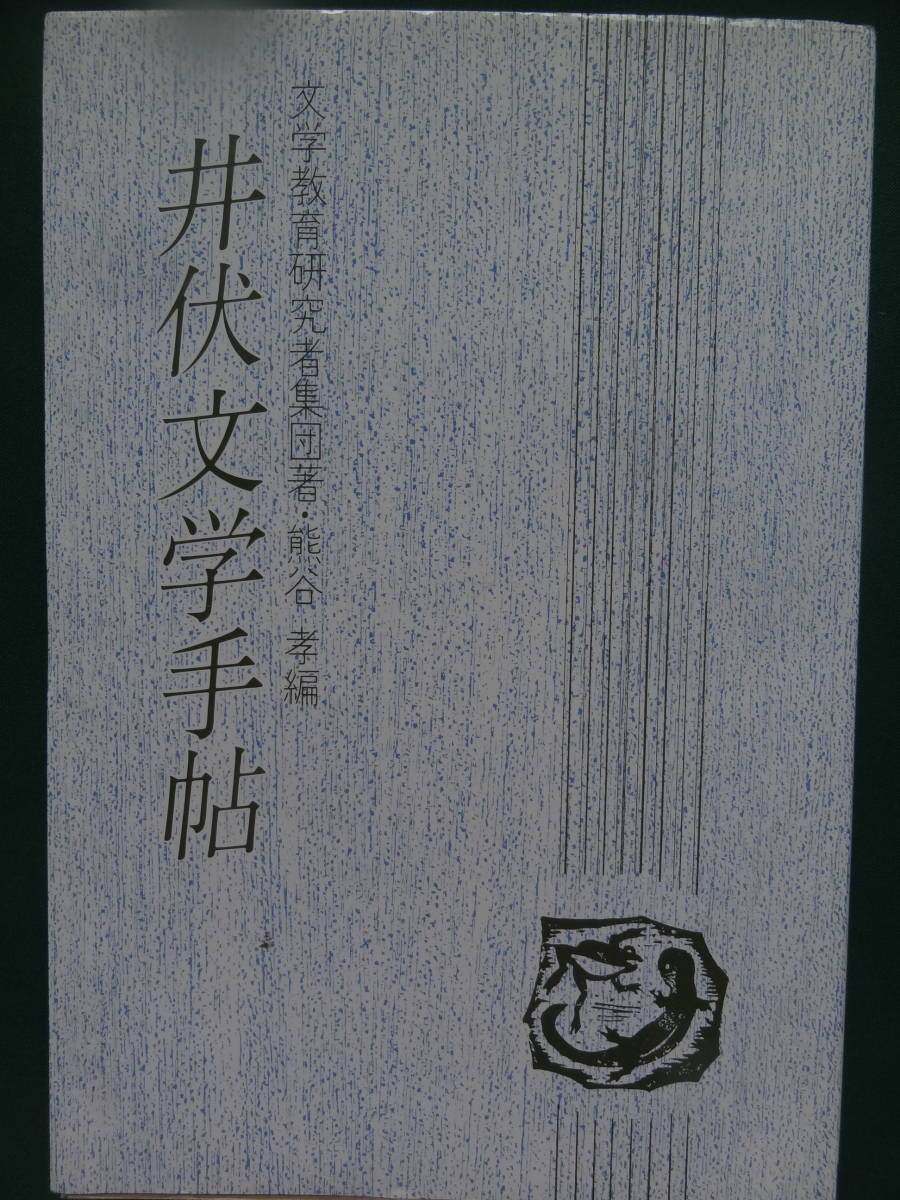 文学教育研究者集団著・熊谷 孝編
井伏文学手帖